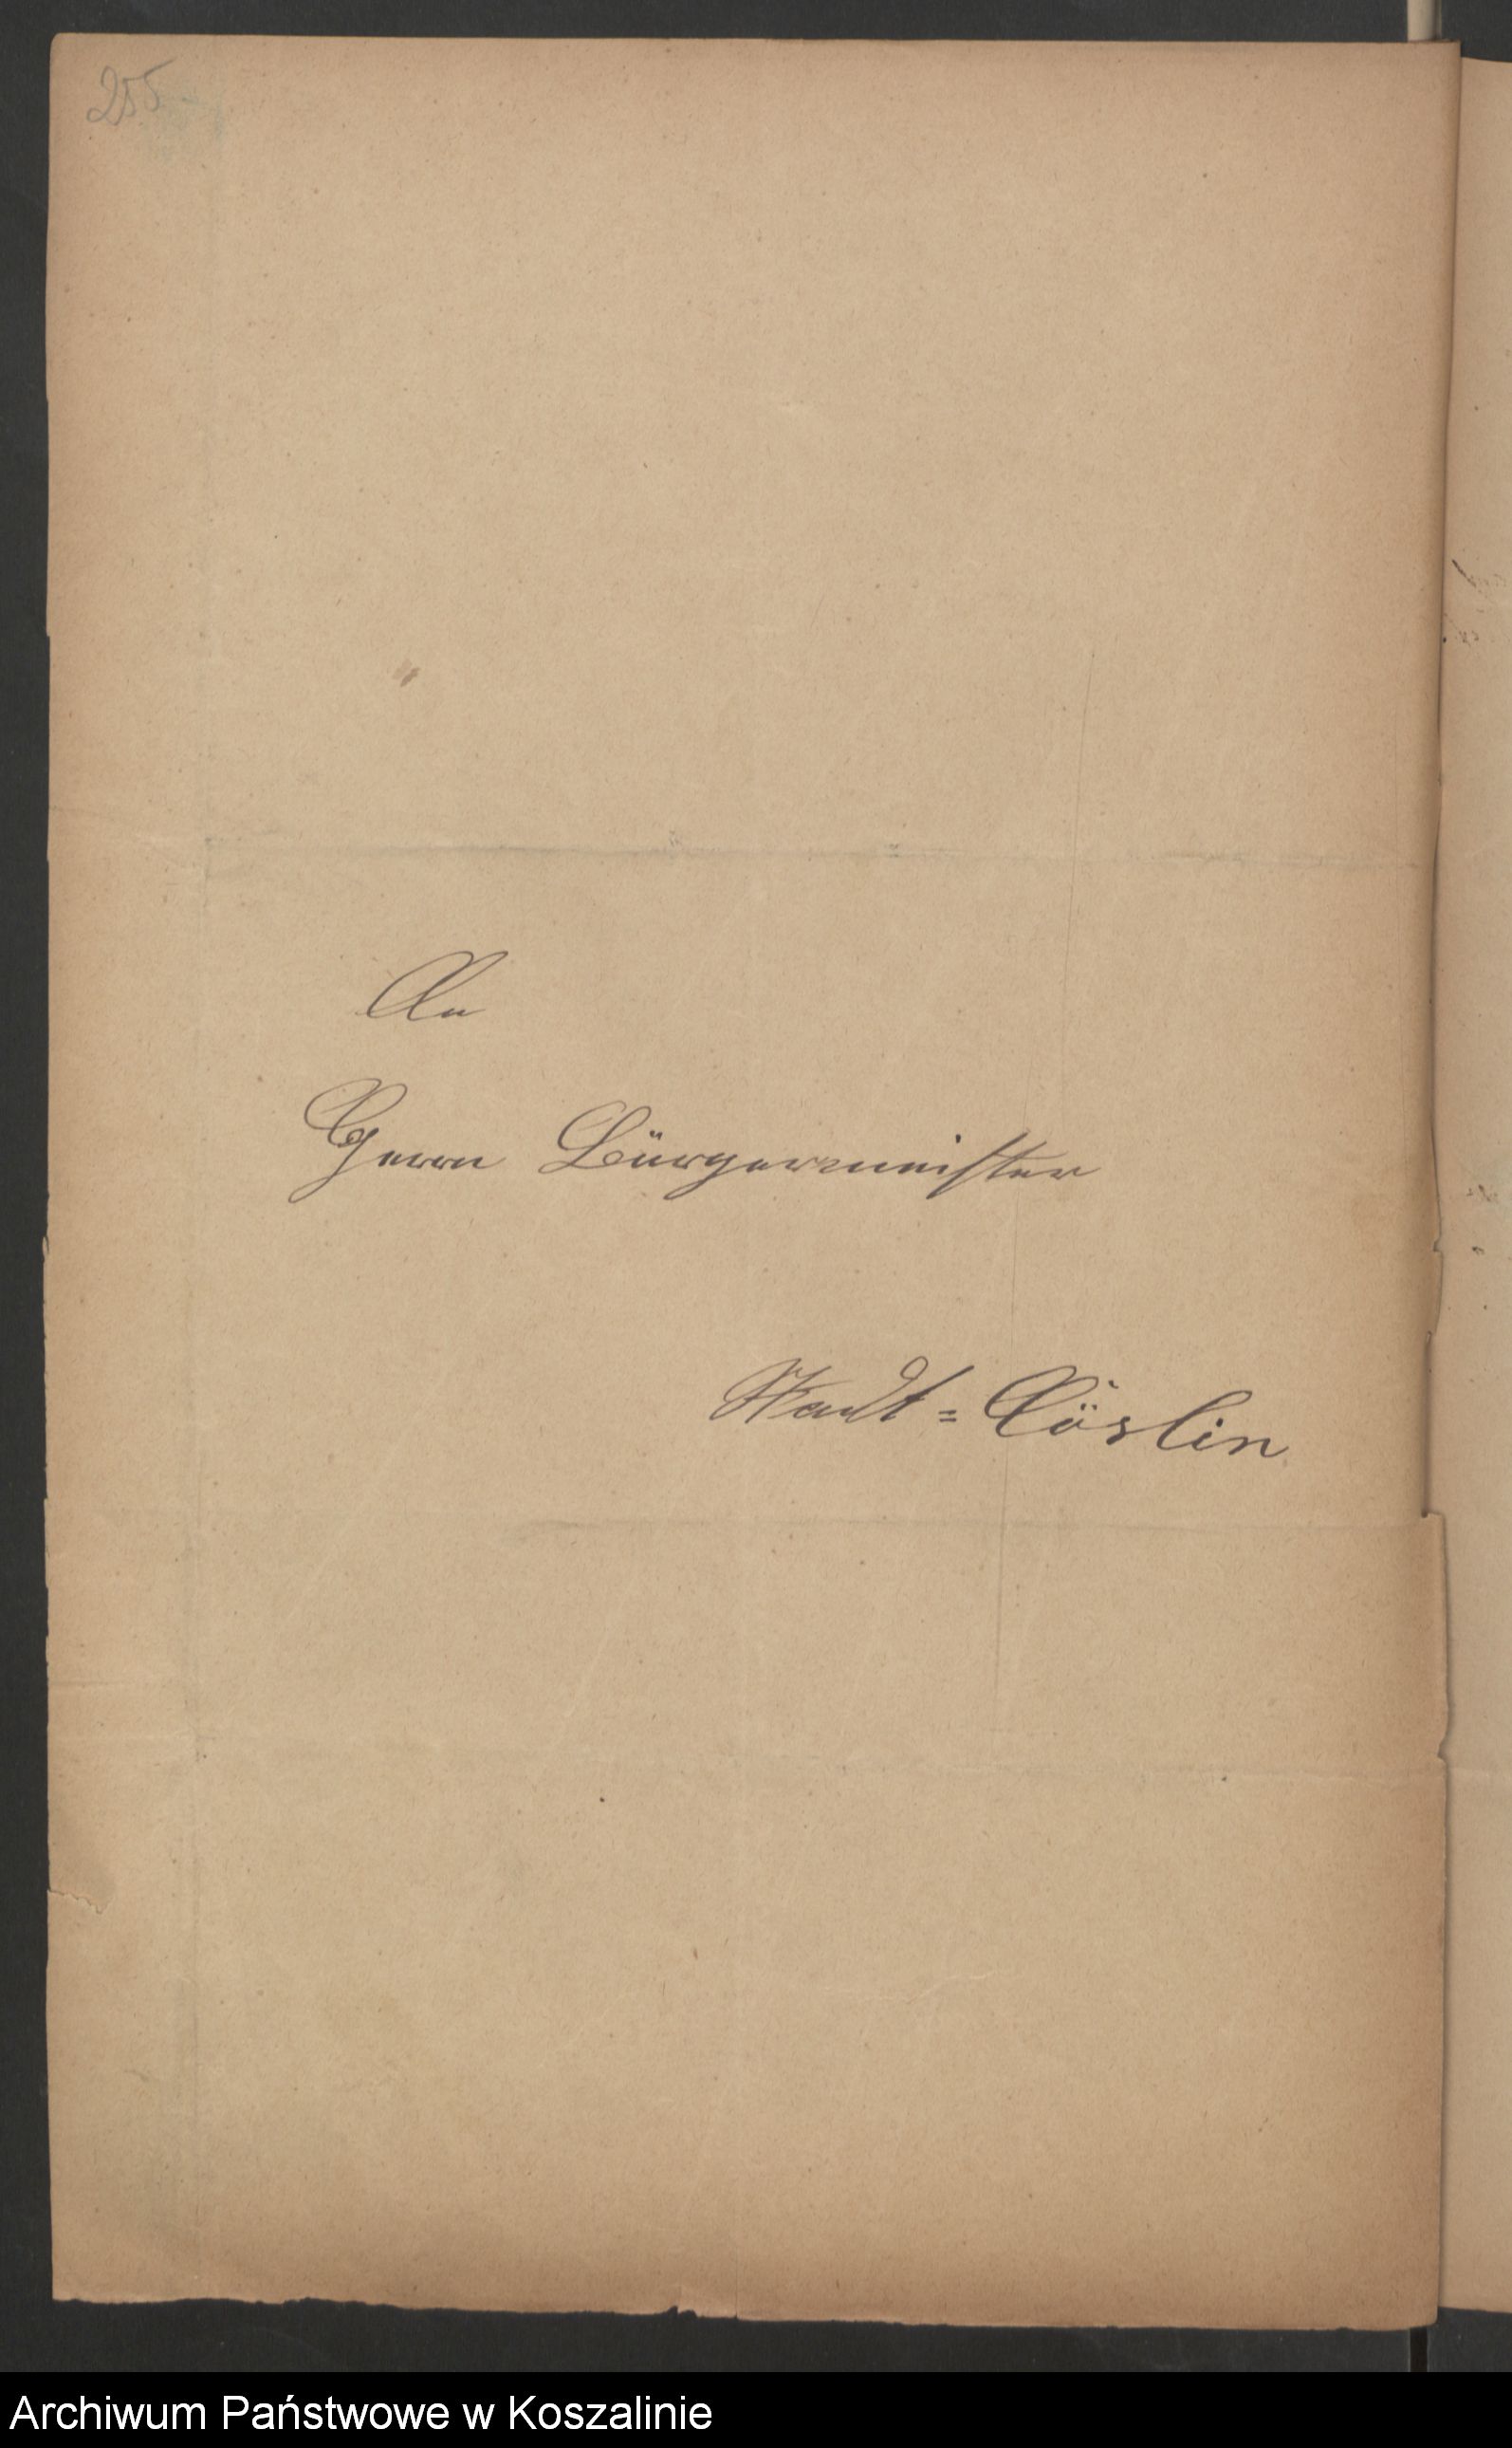 255
An
Herrn Bürgermeister
Stadt = Cöslin
Archiwum Państwowe w Koszalinie